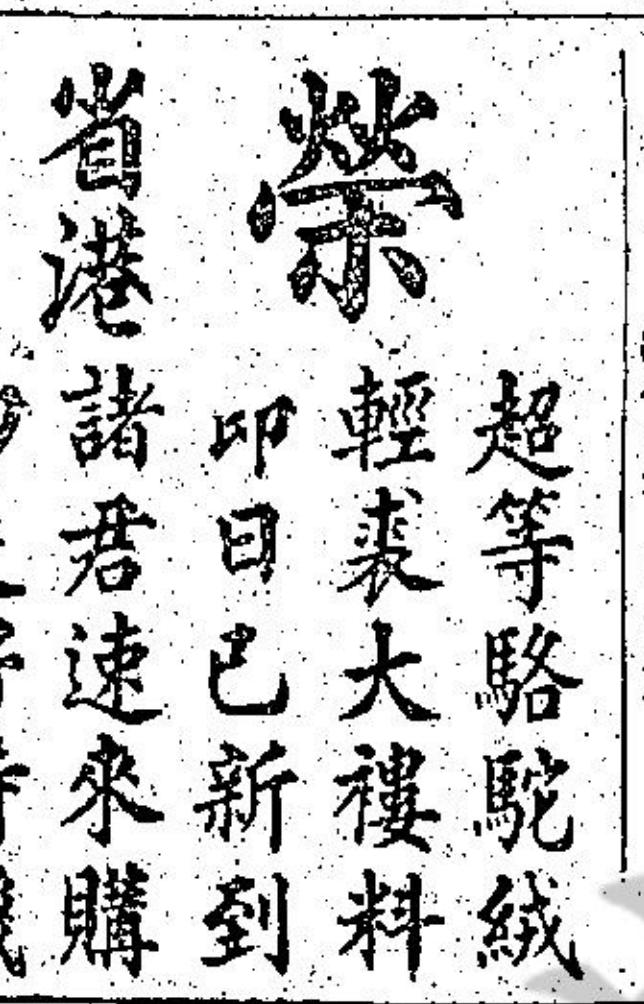 超等駱駝絨
榮
輕裘大褸料
印日已新到
省港諸君速來購